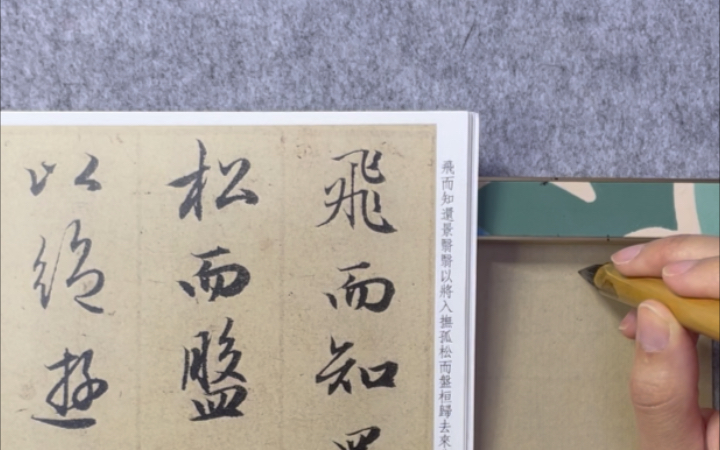 飛而知還景翳翳以將入撫孤松而盤桓歸去來
飛而知
松而盤
以絕遊